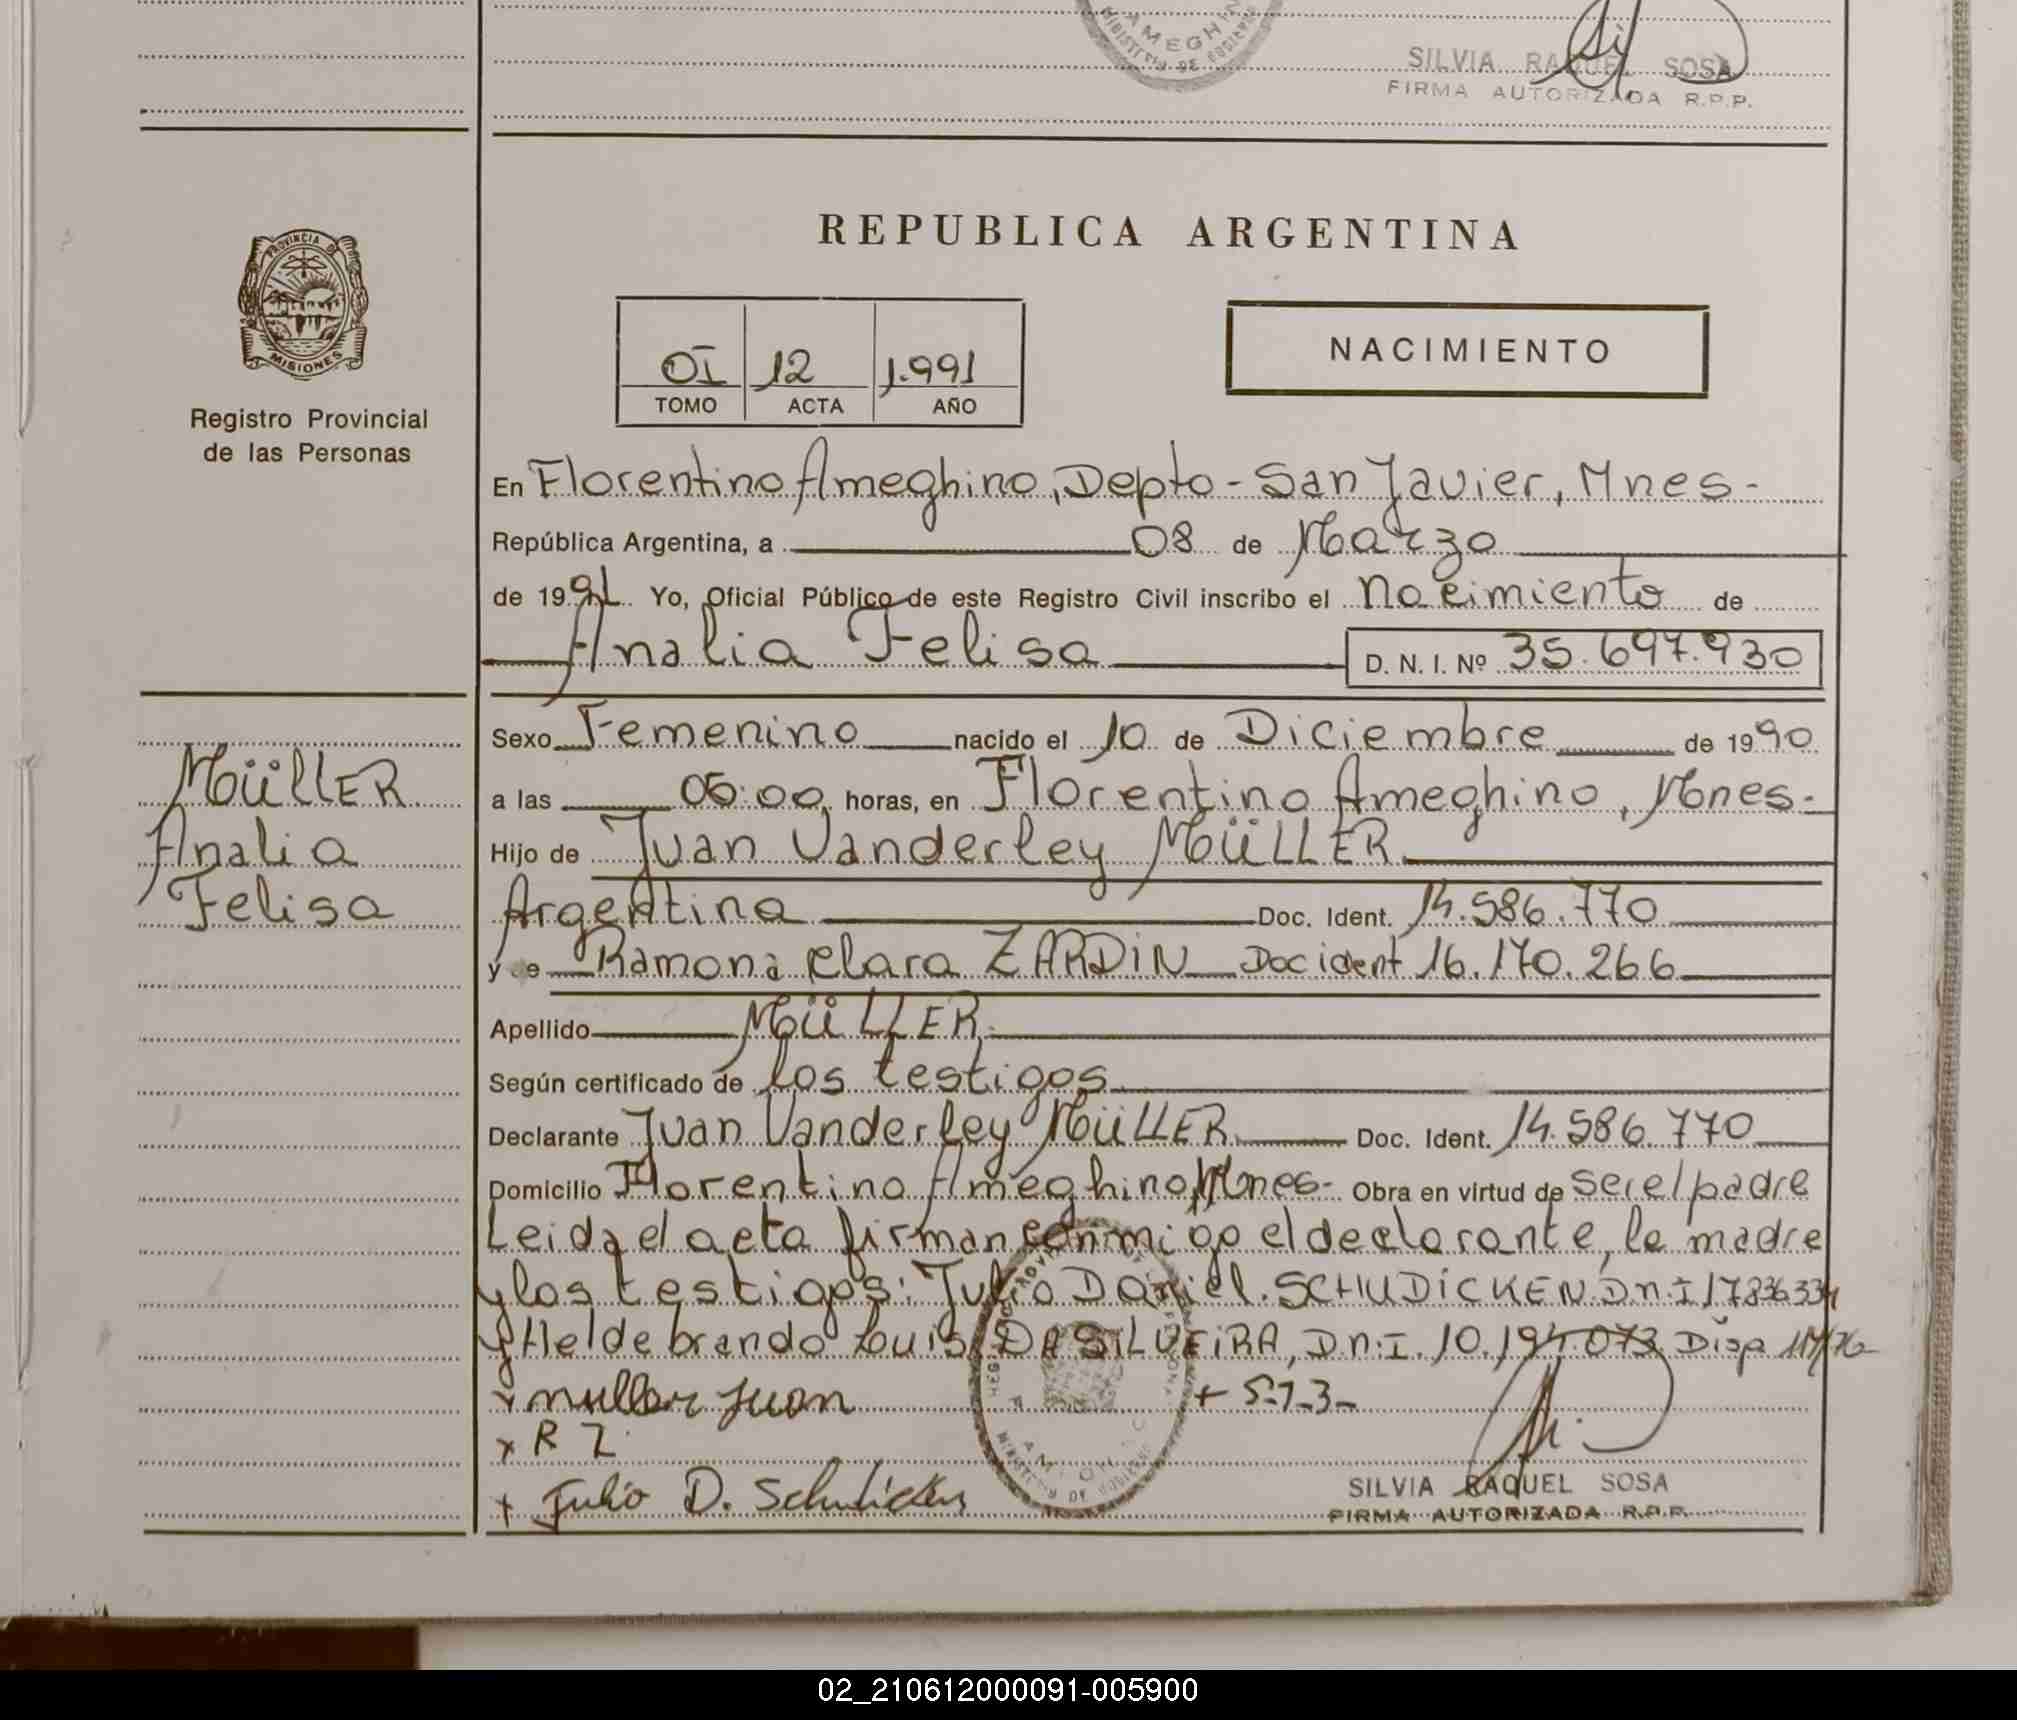 AMEGHIN
MINISTERIO DE GOBIERNO
SILVIA RAQUEL SOSA
FIRMA AUTORIZADA R.P.P.
REPUBLICA ARGENTINA
PROVINCIA DE
MISIONES
Registro Provincial
de las Personas
OI 12 1.991
TOMO ACTA AÑO
NACIMIENTO
En Florentino Ameghino, Depto - San Javier, Mnes -
República Argentina, a 08 de Marzo
de 1991 Yo, Oficial Público de este Registro Civil inscribo el nacimiento de
Analia Felisa D. N. I. Nº 35.697.930
Sexo Femenino nacido el 10 de Diciembre de 1990
a las 05:00 horas, en Florentino Ameghino, Mnes -
Hijo de Juan Vanderley MÜLLER
Argentina Doc. Ident. 14.586.770
y de Ramona Clara ZARDIN Doc ident 16.170.266
Apellido MÜLLER
Según certificado de los testigos
Declarante Juan Vanderley MÜLLER Doc. Ident. 14.586.770
Domicilio Florentino Ameghino, Mnes - Obra en virtud de ser el padre
Leida el acta firman conmigo el declarante, la madre
y los testigos: Julio Daniel SCHUDICKEN D.n.I 17836334
y Heldebrando Luis DA SILVEIRA, D.n.I. 10.194.073 Disp 117/76
MÜLLER
Analia
Felisa
x muller Juan + 5-7-3-
x R Z
+ Julio D. Schudicken
SILVIA RAQUEL SOSA
FIRMA AUTORIZADA R.P.P.
02_210612000091-005900